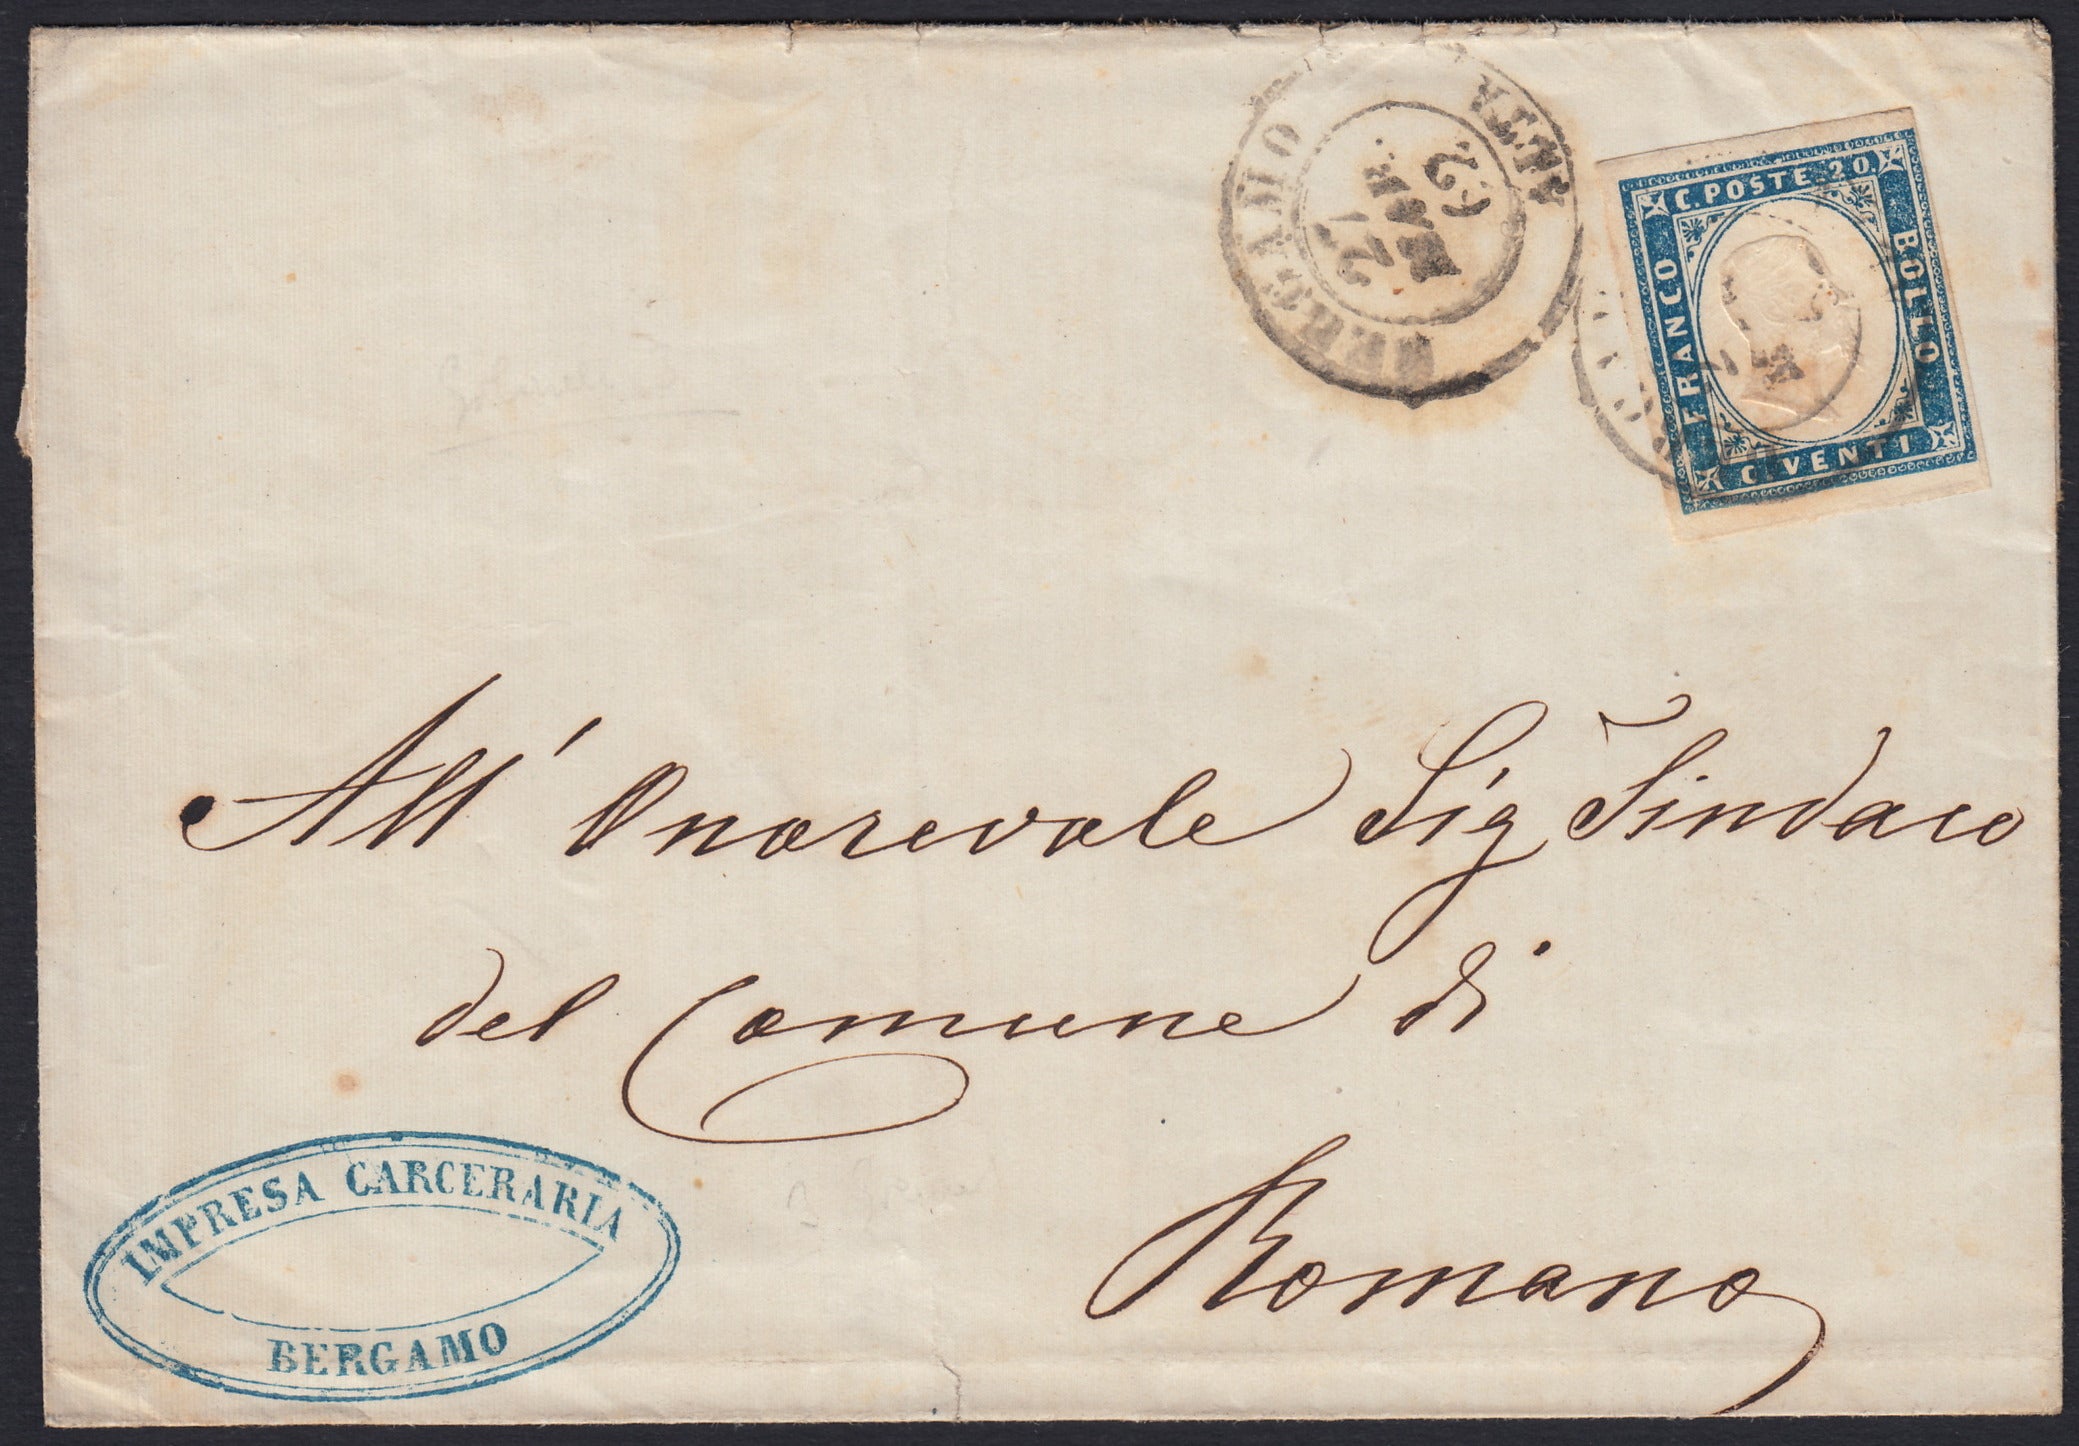 BERGAMO ALTA
27
MAR
62
C. POSTE. 20.
FRANCO
BOLLO
C. VENTI
All' Onorevole Sig Sindaco
del Comune di
Romano
IMPRESA CARCERARIA
BERGAMO